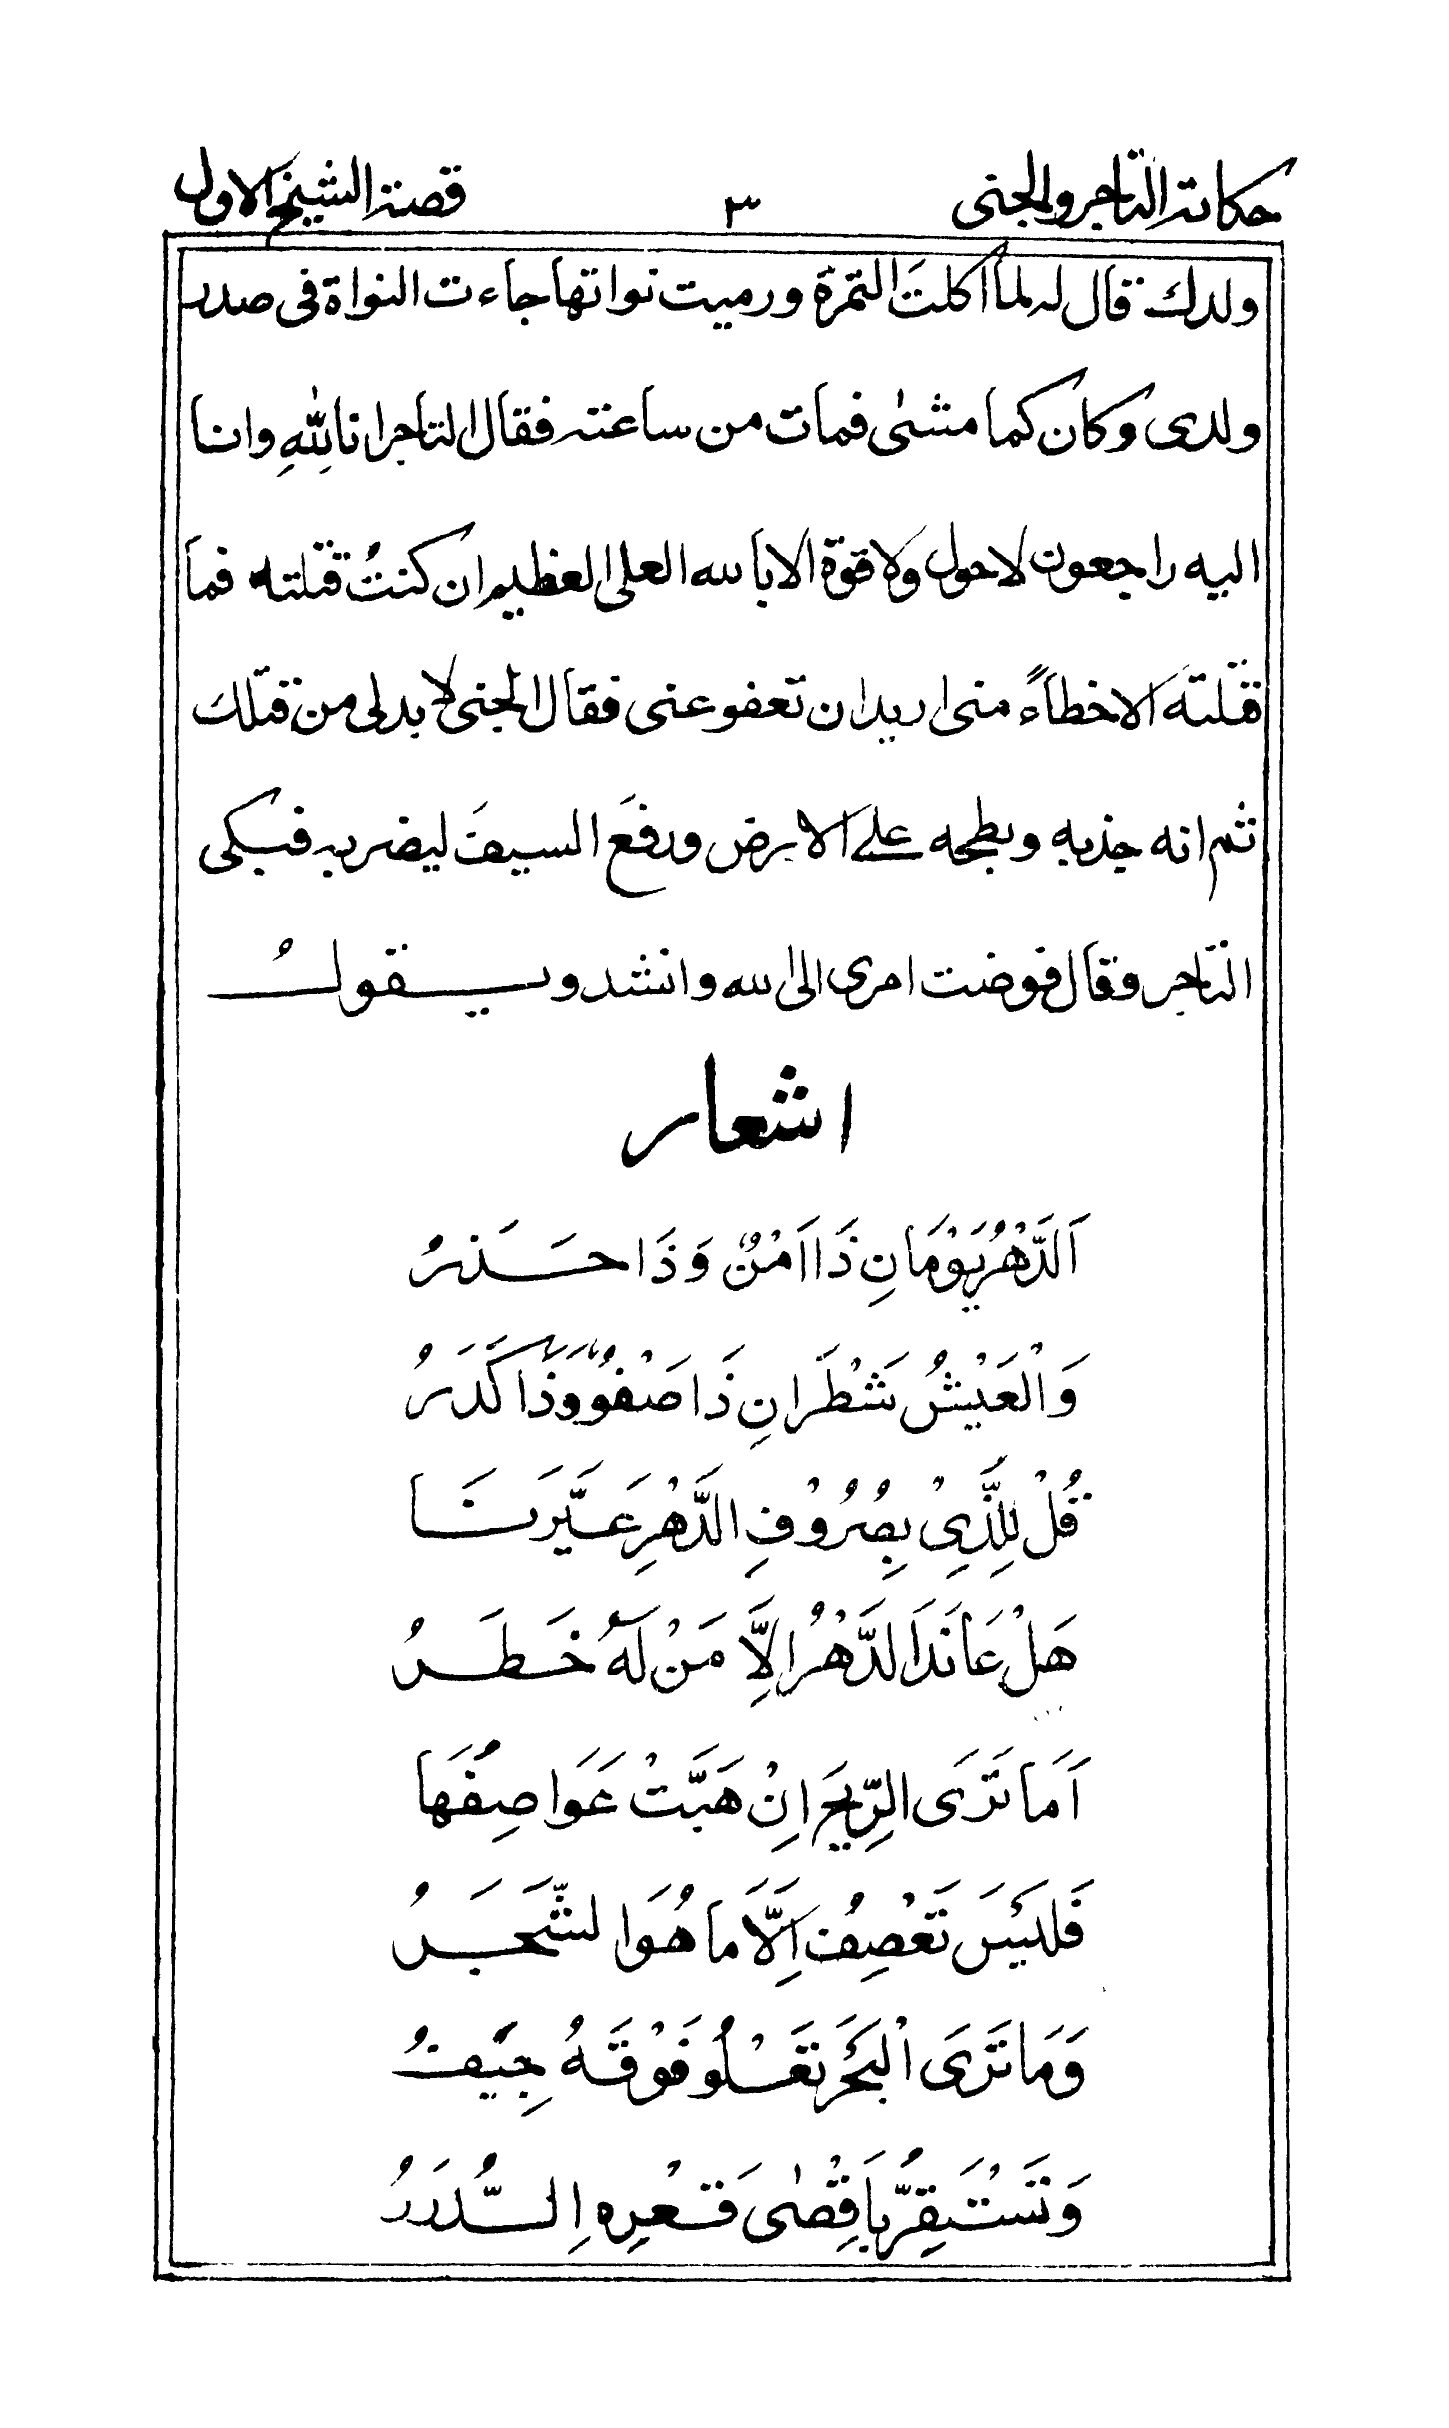 حكاية التاجر والجنى ٣ قصة الشيخ الاول
ولدك قال له لما اكلت التمرة ورميت نواتها جاءت النواة فى صدر
ولدى وكان كما مشى فمات من ساعته فقال التاجر انا لله وانا
اليه راجعون لا حول ولا قوة الا بالله العلى العظيم ان كنتُ قتلته فما
قتلتَه الا خطاءً منى اريد ان تعفو عنى فقال الجنى لا بد لى من قتلك
ثم انه جذبه وبطحه على الارض ورفع السيف ليضربه فبكى
التاجر وقال فوضت امرى الى الله وانشد ويقولُ
اشعار
اَلدَّهْرُ يَوْمَانِ ذَا اَمْنٌ وَذَا حَذَرُ
وَالْعَيْشُ شَطْرَانِ ذَا صَفْوٌ وَذَا كَدَرُ
قُلْ لِلَّذِىْ بِصُرُوْفِ الدَّهْرِ عَيَّرَنَا
هَلْ عَانَدَ الدَّهْرُ اِلَّا مَنْ لَهُ خَطَرُ
اَمَا تَرَى الرِّيحَ اِنْ هَبَّتْ عَوَاصِفُهَا
فَلَيْسَ تَعْصِفُ اِلَّا مَا هُوَ الشَّجَرُ
وَمَا تَرَى الْبَحْرَ تَعْلُو فَوْقَهُ جِيَفُ
وَتَسْتَقِرُّ بِاَقْصٰى قَعْرِهِ الدُّرَرُ